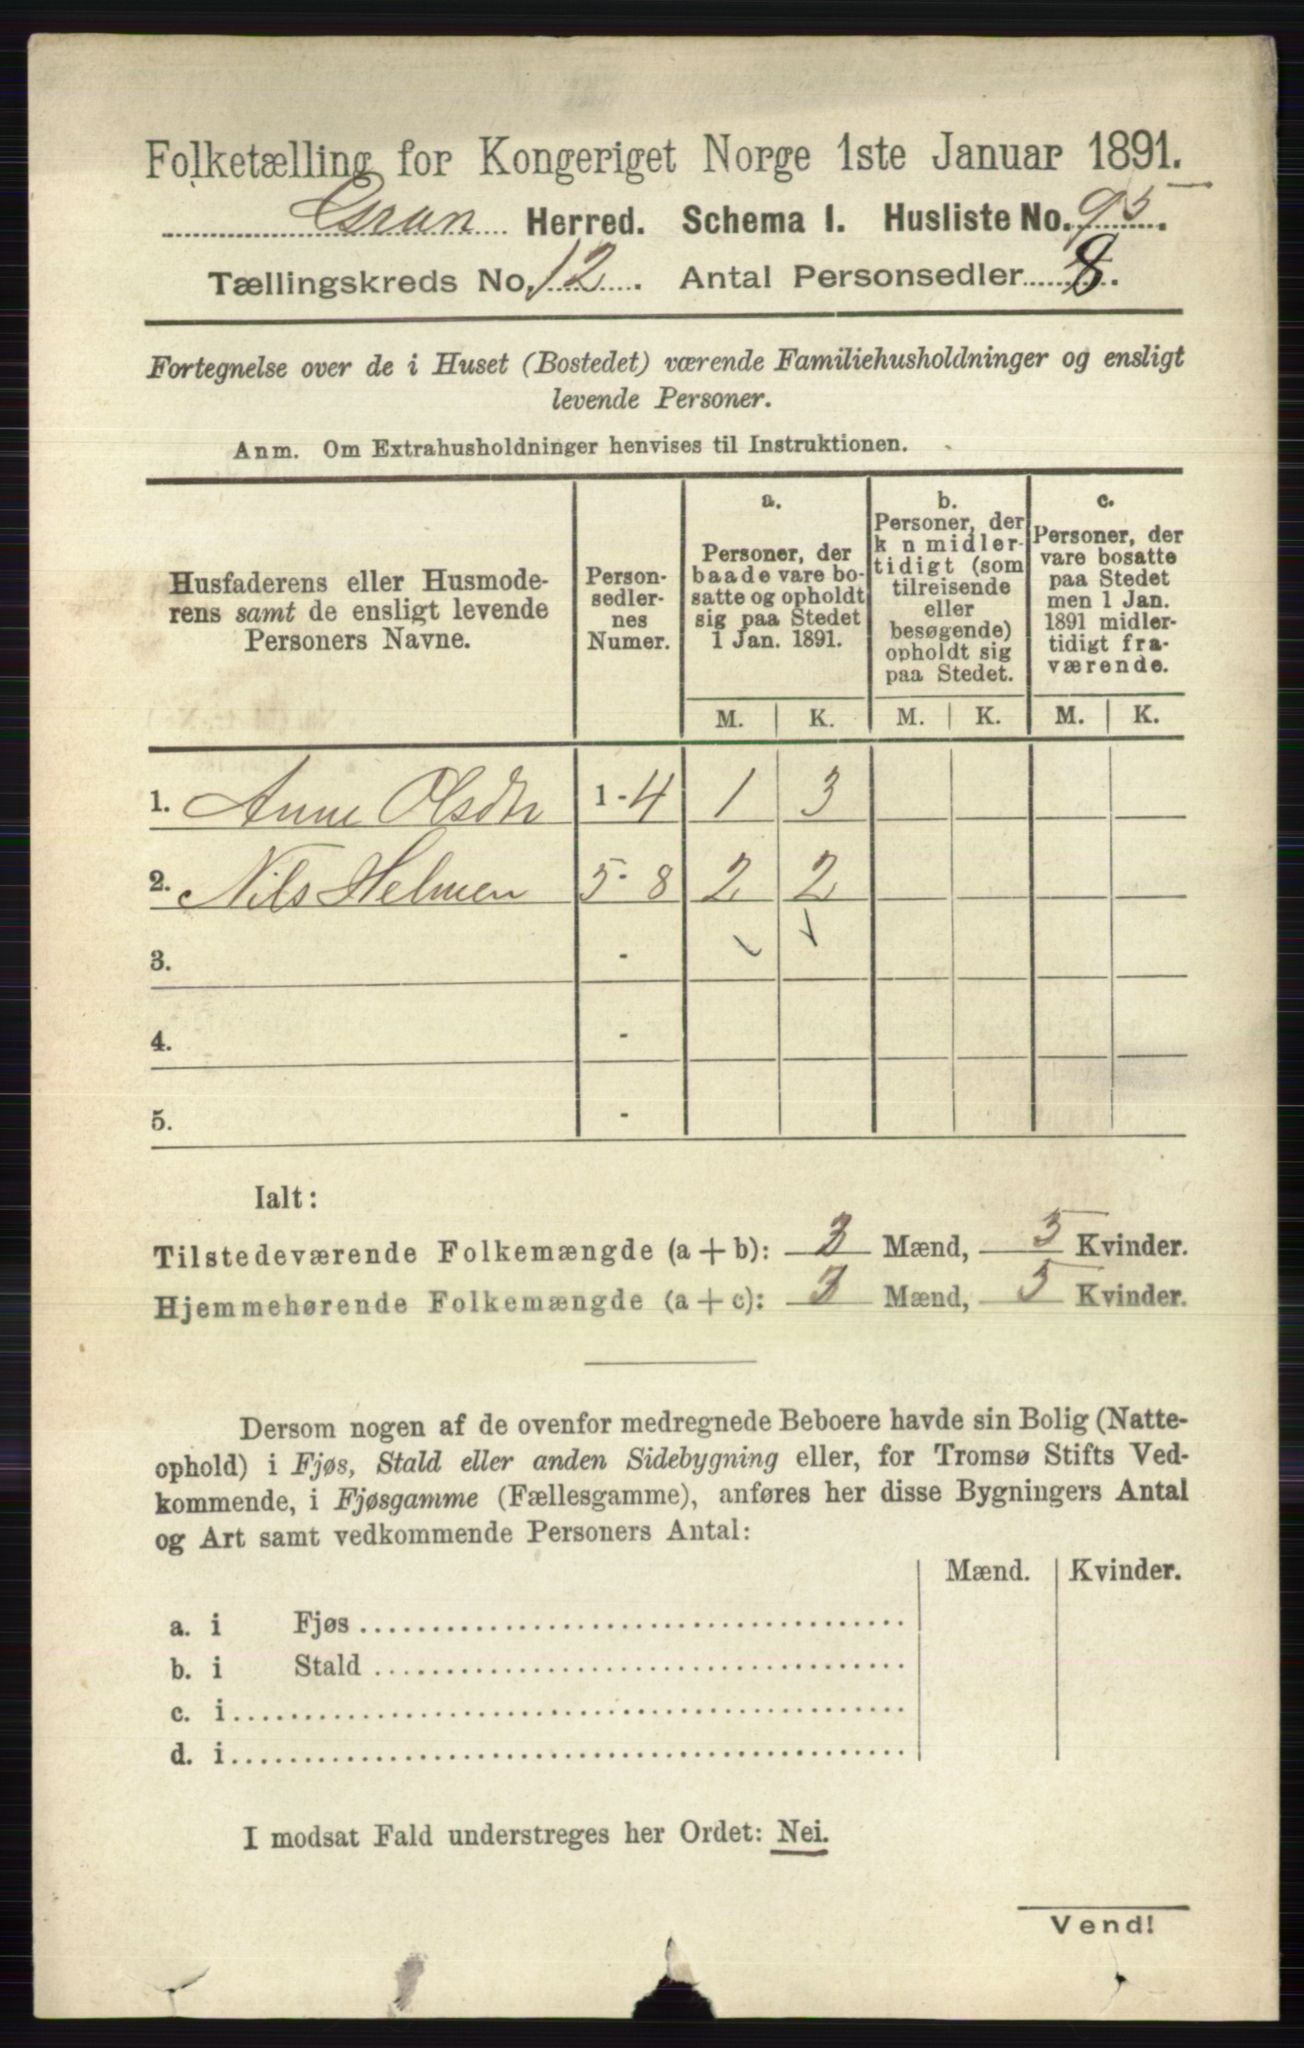 Folketælling for Kongeriget Norge 1ste Januar 1891.
Gran Herred. Schema I. Husliste No. 95.
Tællingskreds No. 12. Antal Personsedler 8.
Fortegnelse over de i Huset (Bostedet) værende Familiehusholdninger og ensligt
levende Personer.
Anm. Om Extrahusholdninger henvises til Instruktionen.
Husfaderens eller Husmode-
rens samt de ensligt levende
Personers Navne.
Person-
sedler-
nes
Numer.
a.
Personer, der
baade vare bo-
satte og opholdt
sig paa Stedet
1 Jan. 1891.
b.
Personer, der
k n midler-
tidigt (som
tilreisende
eller
besøgende)
opholdt sig
paa Stedet.
c.
Personer, der
vare bosatte
paa Stedet
men 1 Jan.
1891 midler-
tidigt fra-
værende.
M. K. M. K. M. K.
1. Anne Olsdtr 1-4 1 3
2. Nils Helmen 5-8 2 2
3. -
4. -
5. -
Ialt:
Tilstedeværende Folkemængde (a + b): 3 Mænd, 5 Kvinder.
Hjemmehørende Folkemængde (a + c): 3 Mænd, 5 Kvinder.
Dersom nogen af de ovenfor medregnede Beboere havde sin Bolig (Natte-
ophold) i Fjøs, Stald eller anden Sidebygning eller, for Tromsø Stifts Ved-
kommende, i Fjøsgamme (Fællesgamme), anføres her disse Bygningers Antal
og Art samt vedkommende Personers Antal:
Mænd. Kvinder.
a. i Fjøs
b. i Stald
c. i
d. i
I modsat Fald understreges her Ordet: Nei.
Vend!